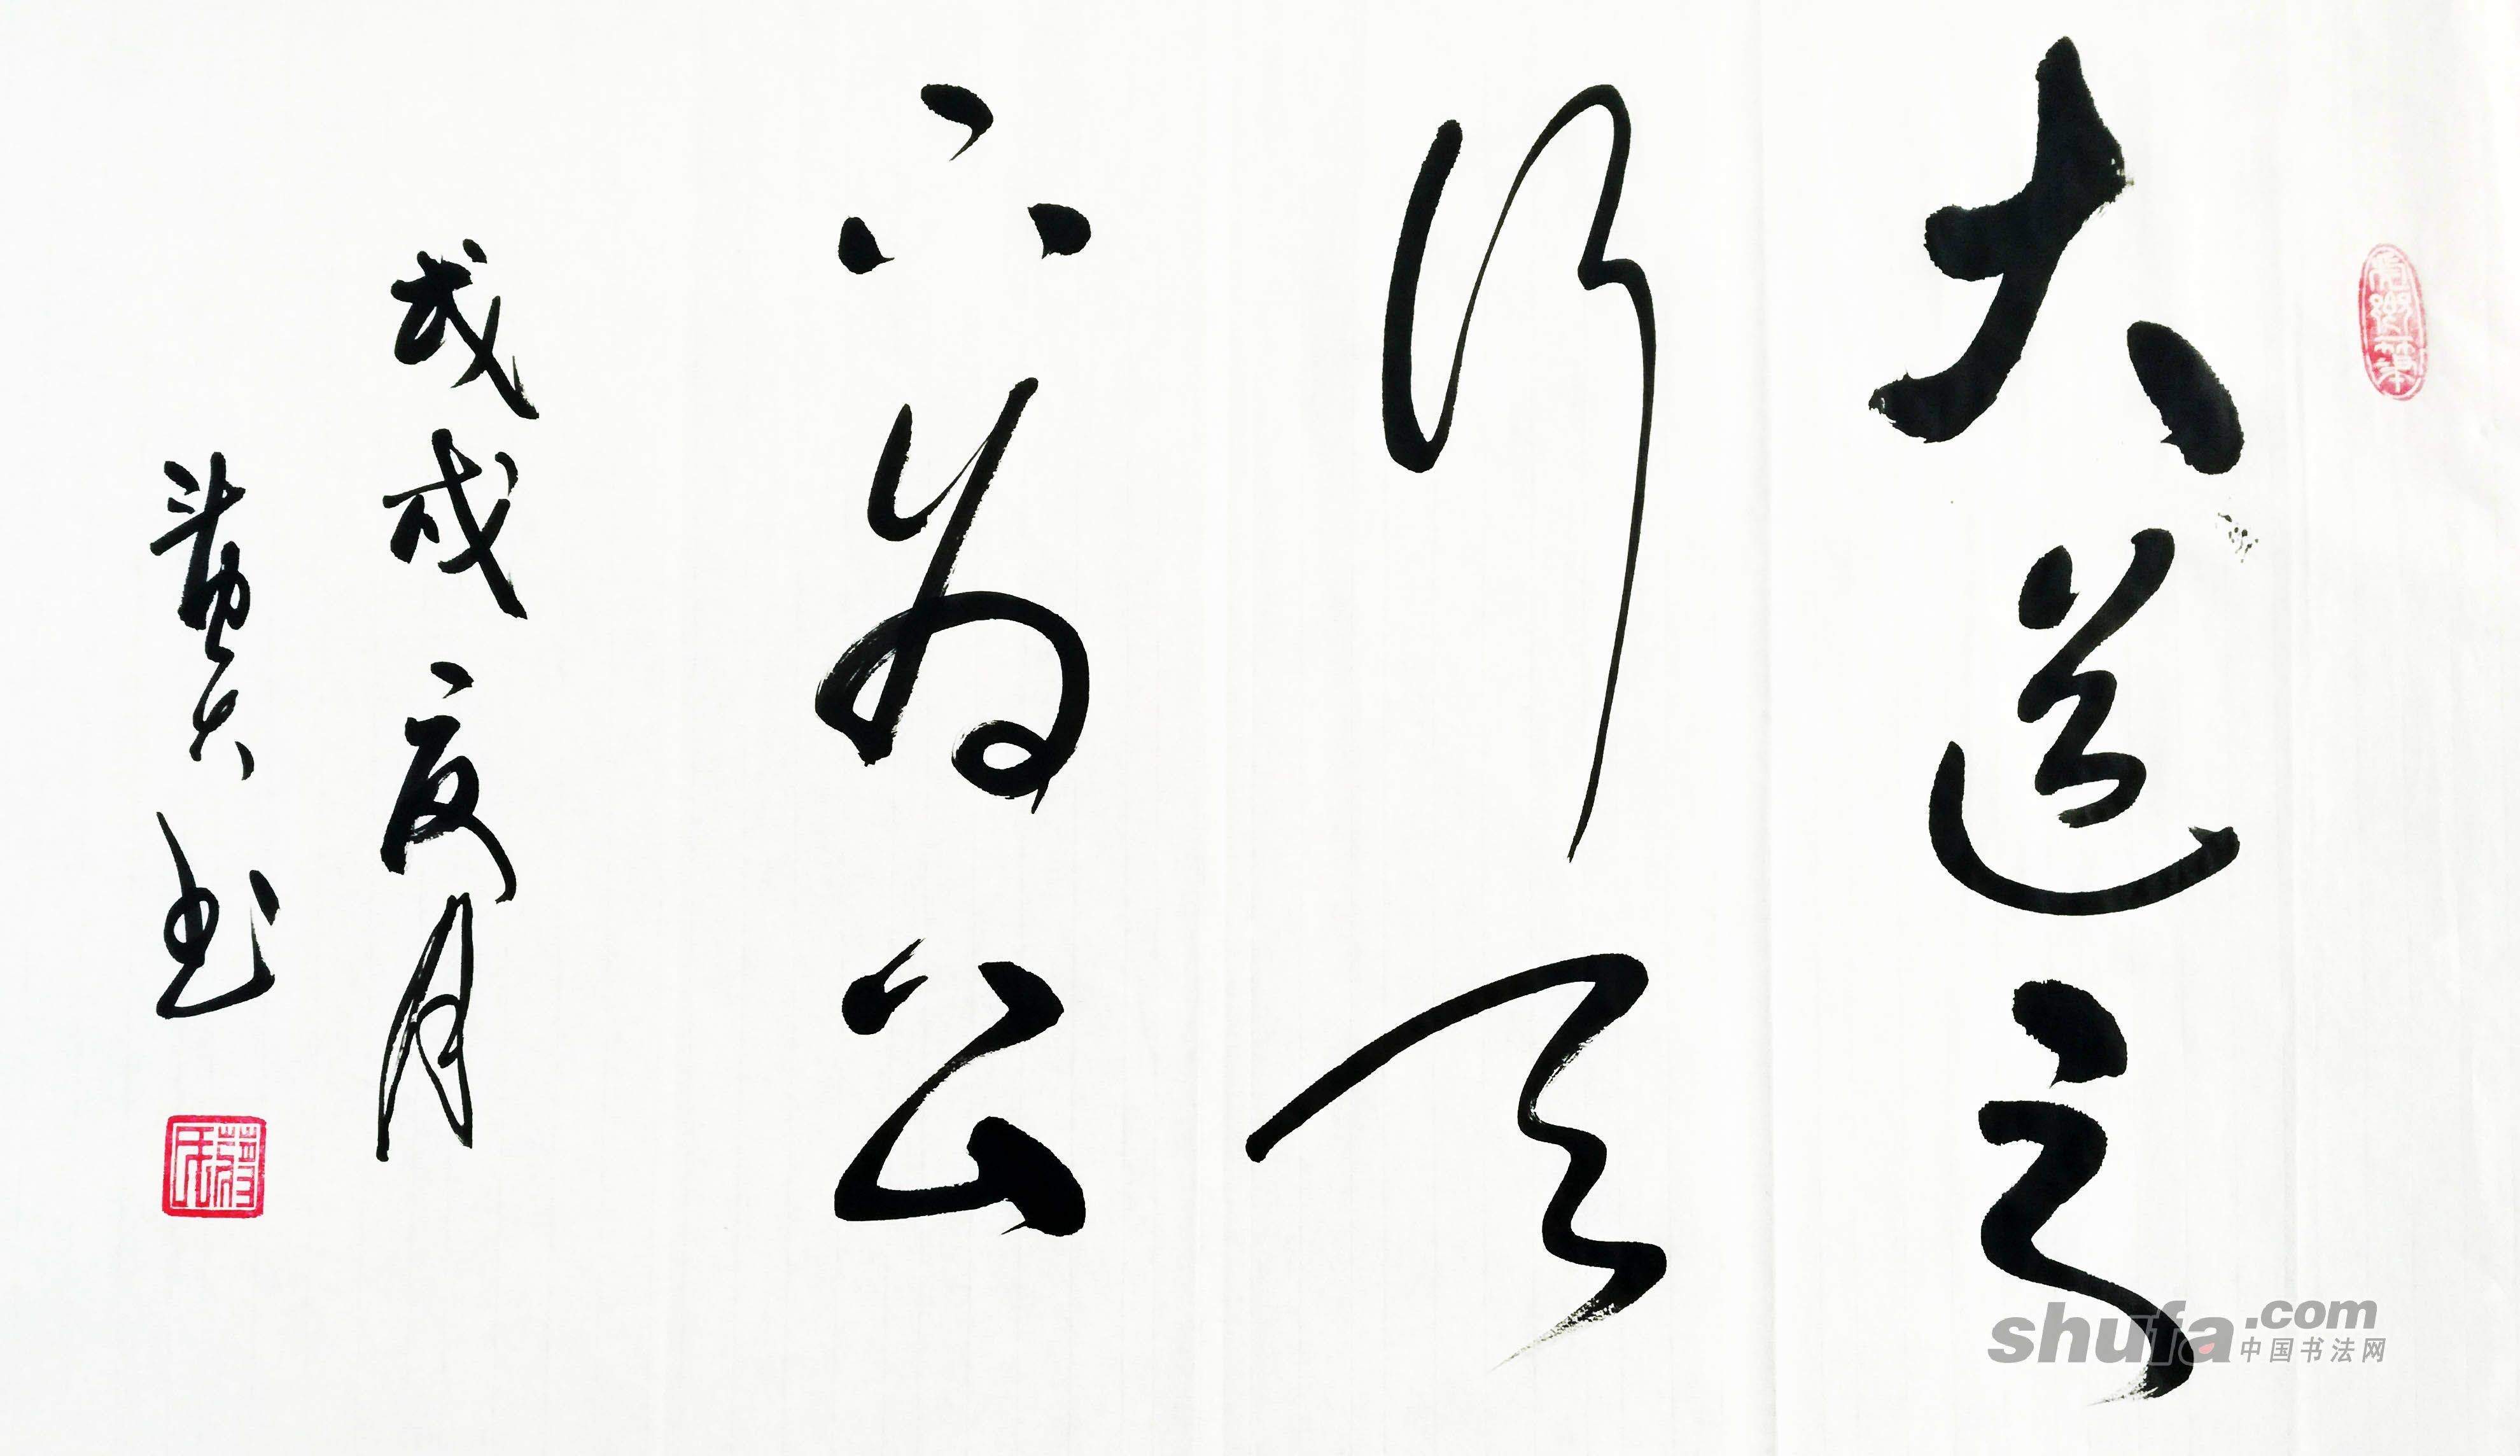 大道之
行天
下为公
戊戌夏月
书
shufa.com
中国书法网